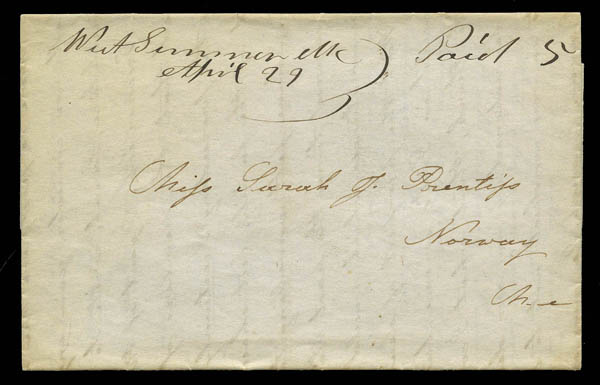 West Sumner Me Paid 5
April 29
Miss Sarah J. Prentiss
Norway
Me